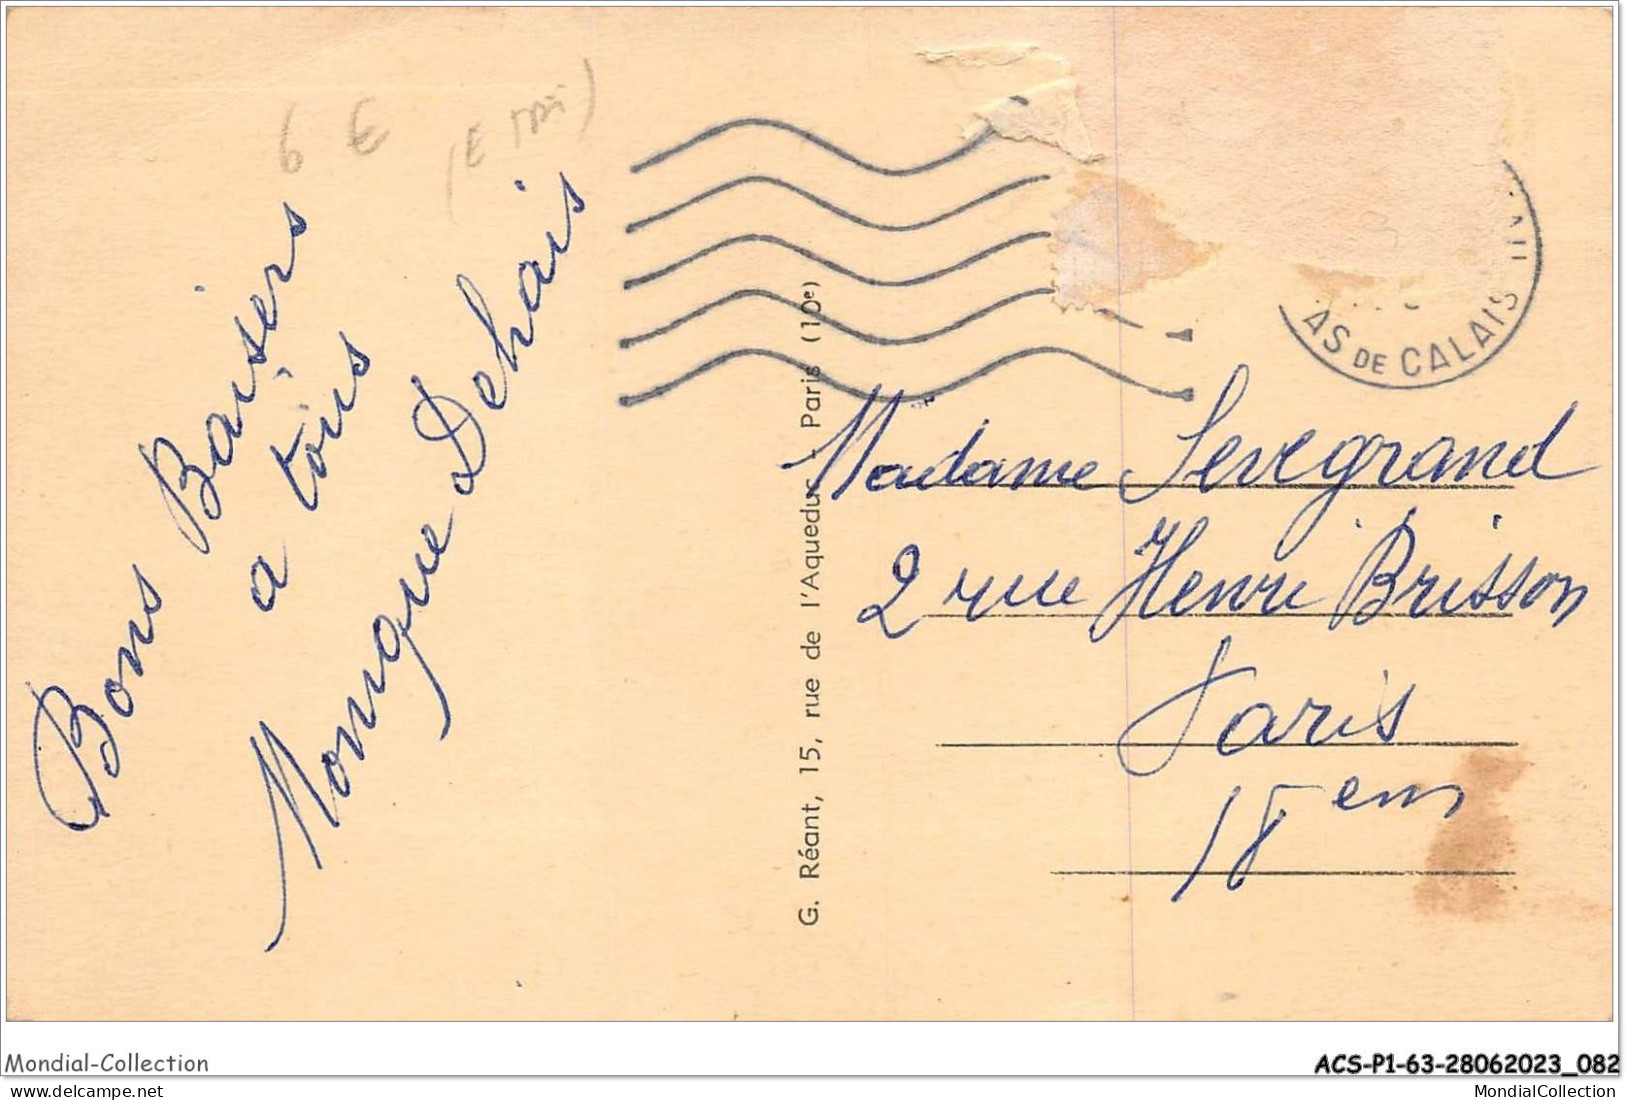 6 €
Bons Baisers
a tois
Monique Dehais
G. Réant, 15, rue de l'Aqueduc - Paris (10e)
AS DE CALAIS
Madame Sevegrand
2 rue Henri Brisson
Paris
18 em
Mondial-Collection
ACS-P1-63-28062023_082
www.delcampe.net
MondialCollection